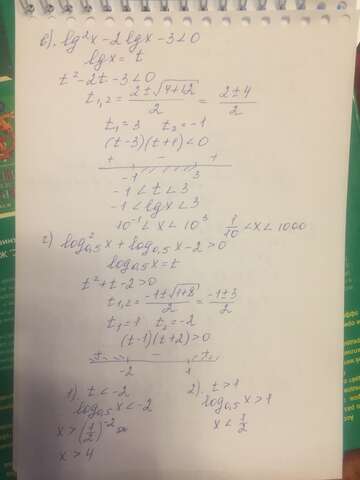 в). lg²x - 2lgx - 3 < 0
lgx = t
t² - 2t - 3 < 0
t₁,₂ = 2 ± √4+12 / 2 = 2 ± 4 / 2
t₁ = 3 t₂ = -1
(t-3)(t+1) < 0
+ - +
-1 3
-1 < t < 3
-1 < lgx < 3
10⁻¹ < x < 10³ 1/10 < x < 1000
г) log²₀,₅x + log₀,₅x - 2 > 0
log₀,₅x = t
t² + t - 2 > 0
t₁,₂ = -1 ± √1+8 / 2 = -1 ± 3 / 2
t₁ = 1 t₂ = -2
(t-1)(t+2) > 0
+ - +
-2 1
1). t < -2 2). t > 1
log₀,₅x < -2 log₀,₅x > 1
x > (1/2)⁻² x < 1/2
x > 4